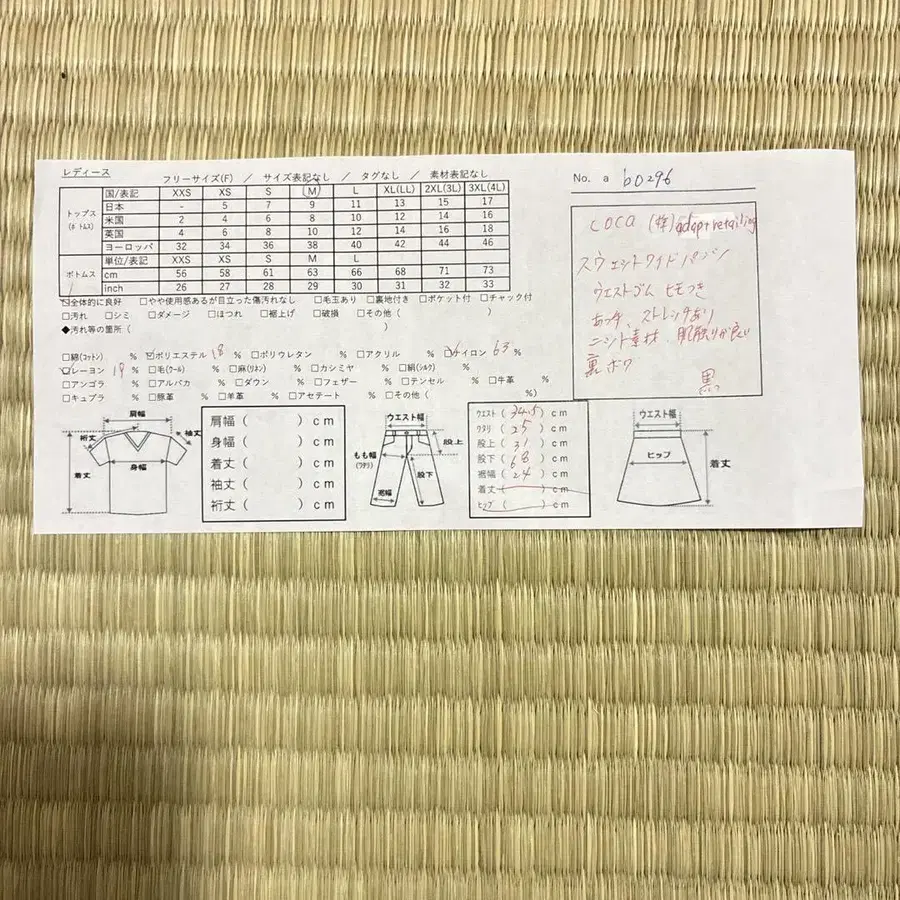 レディース
フリーサイズ(F) ／ サイズ表記なし ／ タグなし ／ 素材表記なし
トップス(ボトムス)
国/表記 XXS XS S M L XL(LL) 2XL(3L) 3XL(4L)
日本 - 5 7 9 11 13 15 17
米国 2 4 6 8 10 12 14 16
英国 4 6 8 10 12 14 16 18
ヨーロッパ 32 34 36 38 40 42 44 46
ボトムス
単位/表記 XXS XS S M L
cm 56 58 61 63 66 68 71 73
inch 26 27 28 29 30 31 32 33
□全体的に良好 □やや使用感あるが目立った傷汚れなし □毛玉あり □裏地付き □ポケット付 □チャック付
□汚れ □シミ □ダメージ □ほつれ □裾上げ □破損 □その他( )
◆汚れ等の箇所( )
□綿(コットン) % □ポリエステル 18 % □ポリウレタン % □アクリル % □ナイロン 63 %
□レーヨン 19 % □毛(ウール) % □麻(リネン) % □カシミヤ % □絹(シルク) %
□アンゴラ % □アルパカ % □ダウン % □フェザー % □テンセル % □牛革 %
□キュプラ % □豚革 % □羊革 % □アセテート % □その他( %)
No. a b0296
coca (株)adaptretailing
スウェットワイドパンツ
ウエストゴム ヒモつき
あつ手、ストレッチあり
ニット素材、肌触りが良い
裏ボワ
黒
肩幅
裄丈
袖丈
身幅
着丈
肩幅( )cm
身幅( )cm
着丈( )cm
袖丈( )cm
裄丈( )cm
ウエスト幅
股上
もも幅
(ワタリ)
股下
裾幅
ウエスト(34.5)cm
ワタリ(25)cm
股上(31)cm
股下(68)cm
裾幅(24)cm
着丈( )cm
ヒップ( )cm
ウエスト幅
ヒップ
着丈